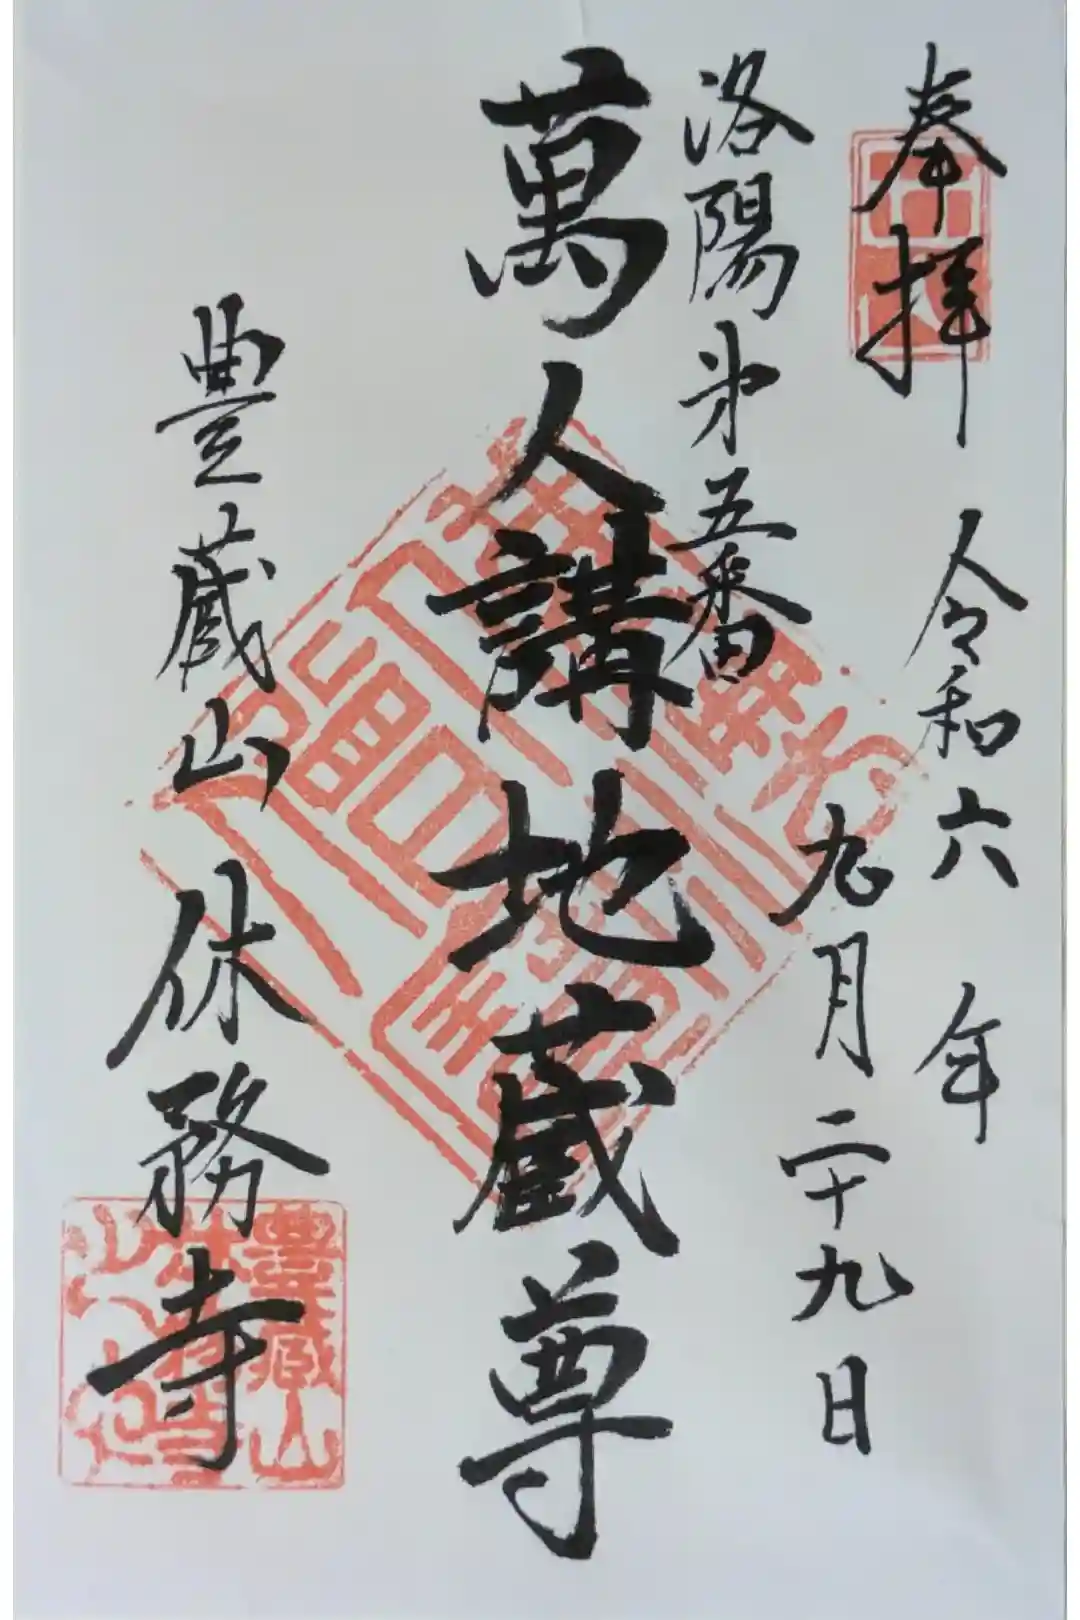 奉拝
令和六年
九月二十九日
洛陽第五番
萬人講地蔵尊
豊蔵山 休務寺
豊蔵山